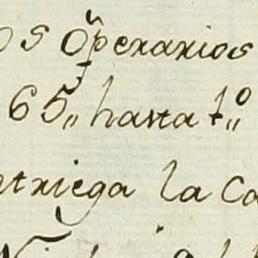 os operarios
65,, hasta 1º,,
ntriega la ca